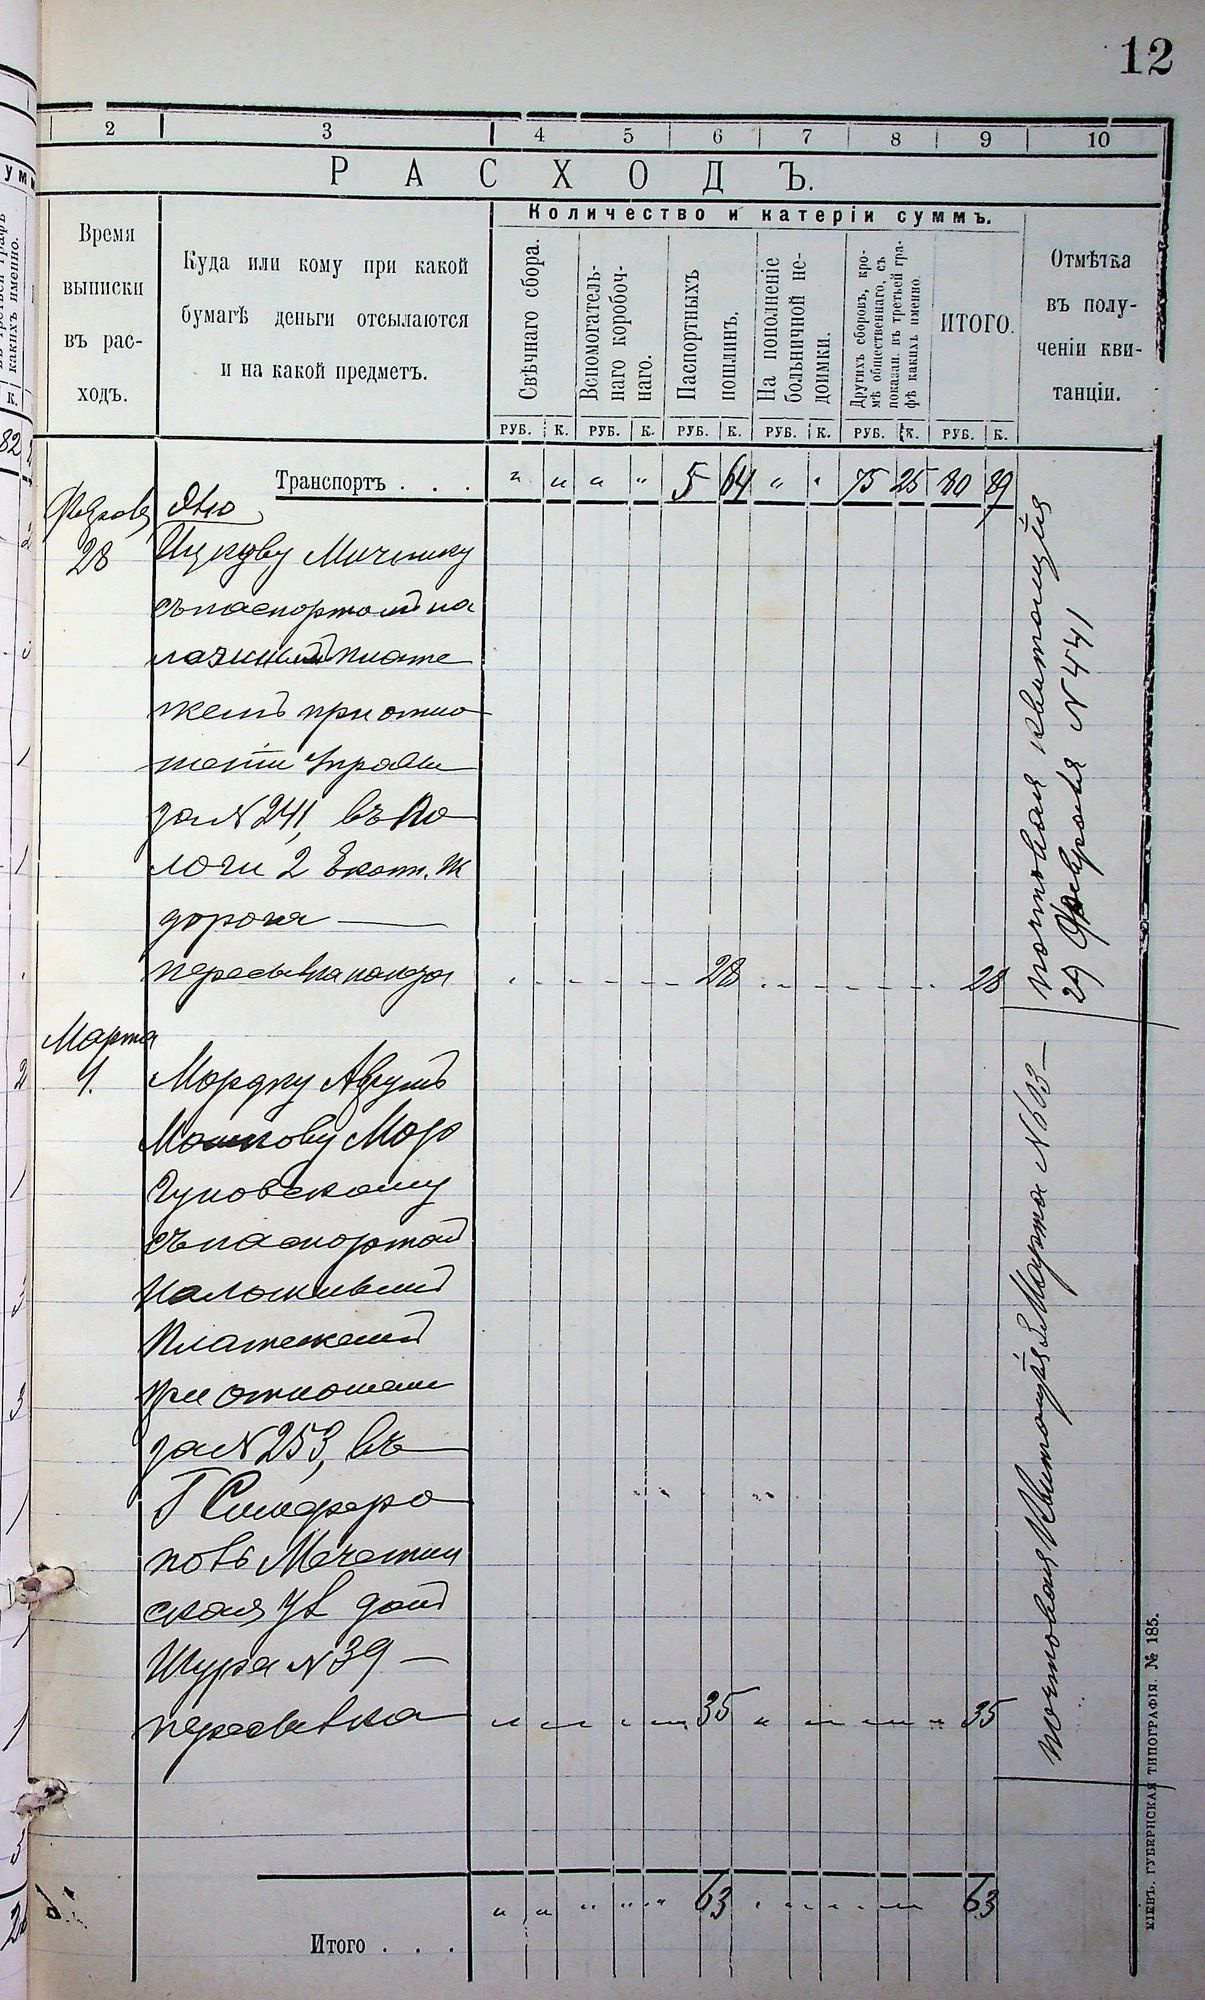 12
2 3 4 5 6 7 8 9 10
РАСХОДЪ.
Количество и катерій суммъ.
Время
выписки
въ рас-
ходъ.
Куда или кому при какой
бумагѣ деньги отсылаются
и на какой предметъ.
Свѣчнаго сбора.
Вспомогатель-
наго коробоч-
наго.
Паспортныхъ
пошлинъ.
На пополненіе
больничной не-
доимки.
Другихъ сборовъ, кро-
мѣ общественнаго, съ
показан. въ третьей гра-
фѣ какихъ именно.
ИТОГО.
Отмѣтка
въ полу-
ченіи кви-
танціи.
РУБ. К. РУБ. К. РУБ. К. РУБ. К. РУБ. К. РУБ. К.
Транспортъ . . . " " " " 5 64 " " 75 25 80 89
28
съ паспортомъ на
ложнымъ плате
жемъ при отно
шеніи Управы
за N 241, въ По
логи 2 Екат. Ж
дорога —
пересылка 28 28
почтовая квитанція
29 Февраля N 441
Марта
1. Мордку Аврумъ
Мошкову Мор
гуновскому
съ паспортомъ
Наложнымъ
Платежемъ
при отношеніи
за N 253, въ
Г Симферо
поль Мечетни
ская ул домъ
Шура N 39 —
пересылка 35 35
почтовая Квитанція 3 Марта N 603 —
63 63
Итого . . .
КІЕВЪ. ГУБЕРНСКАЯ ТИПОГРАФІЯ. № 185.